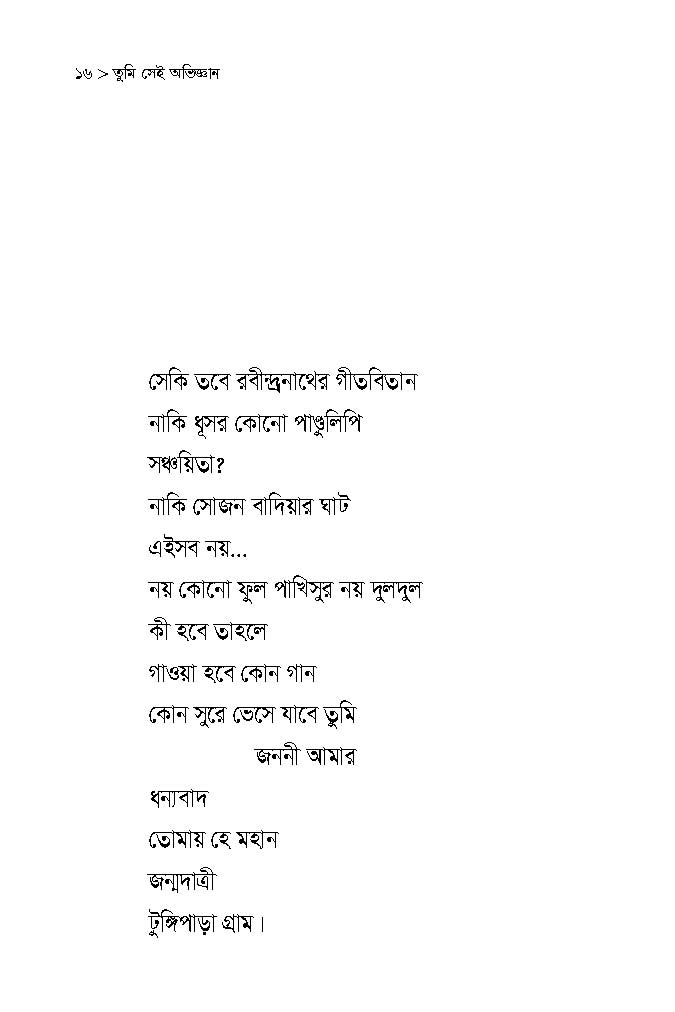 ১৬ > তুমি সেই অভিজ্ঞান
সেকি তবে রবীন্দ্রনাথের গীতবিতান
নাকি ধূসর কোনো পাণ্ডুলিপি
সঞ্চয়িতা?
নাকি সোজন বাদিয়ার ঘাট
এইসব নয়...
নয় কোনো ফুল পাখিসুর নয় দুলদুল
কী হবে তাহলে
গাওয়া হবে কোন গান
কোন সুরে ভেসে যাবে তুমি
জননী আমার
ধন্যবাদ
তোমায় হে মহান
জন্মদাত্রী
টুঙ্গিপাড়া গ্রাম।